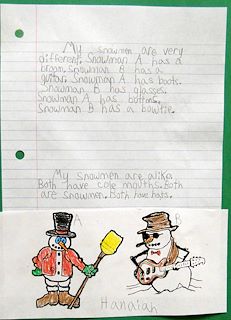 My snowmen are very
different. Snowman A has a
broom. Snowman B has a
guitar. Snowman A has boots.
Snowman B has glasses.
Snowman A has buttons.
Snowman B has a bowtie.
My snowmen are alike.
Both have cole mouths. Both
are snowmen. Both have hats.
A B
Hanaiah